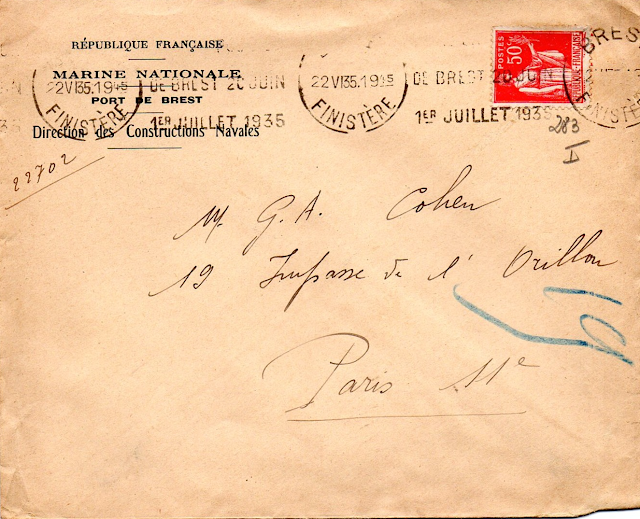 RÉPUBLIQUE FRANÇAISE
MARINE NATIONALE
PORT DE BREST
Direction des Constructions Navales
22 VI 35. 1945
FINISTÈRE
DE BREST 20 JUIN
1ER JUILLET 1935
22 VI 35. 1945
FINISTÈRE
DE BREST 20 JUIN
1ER JUILLET 1935
BREST
FINISTÈRE
POSTES
50c
RÉPUBLIQUE FRANÇAISE
283
I
22702
M. G. A. Cohen
19 Impasse de l' Orillon
Paris 11e
19